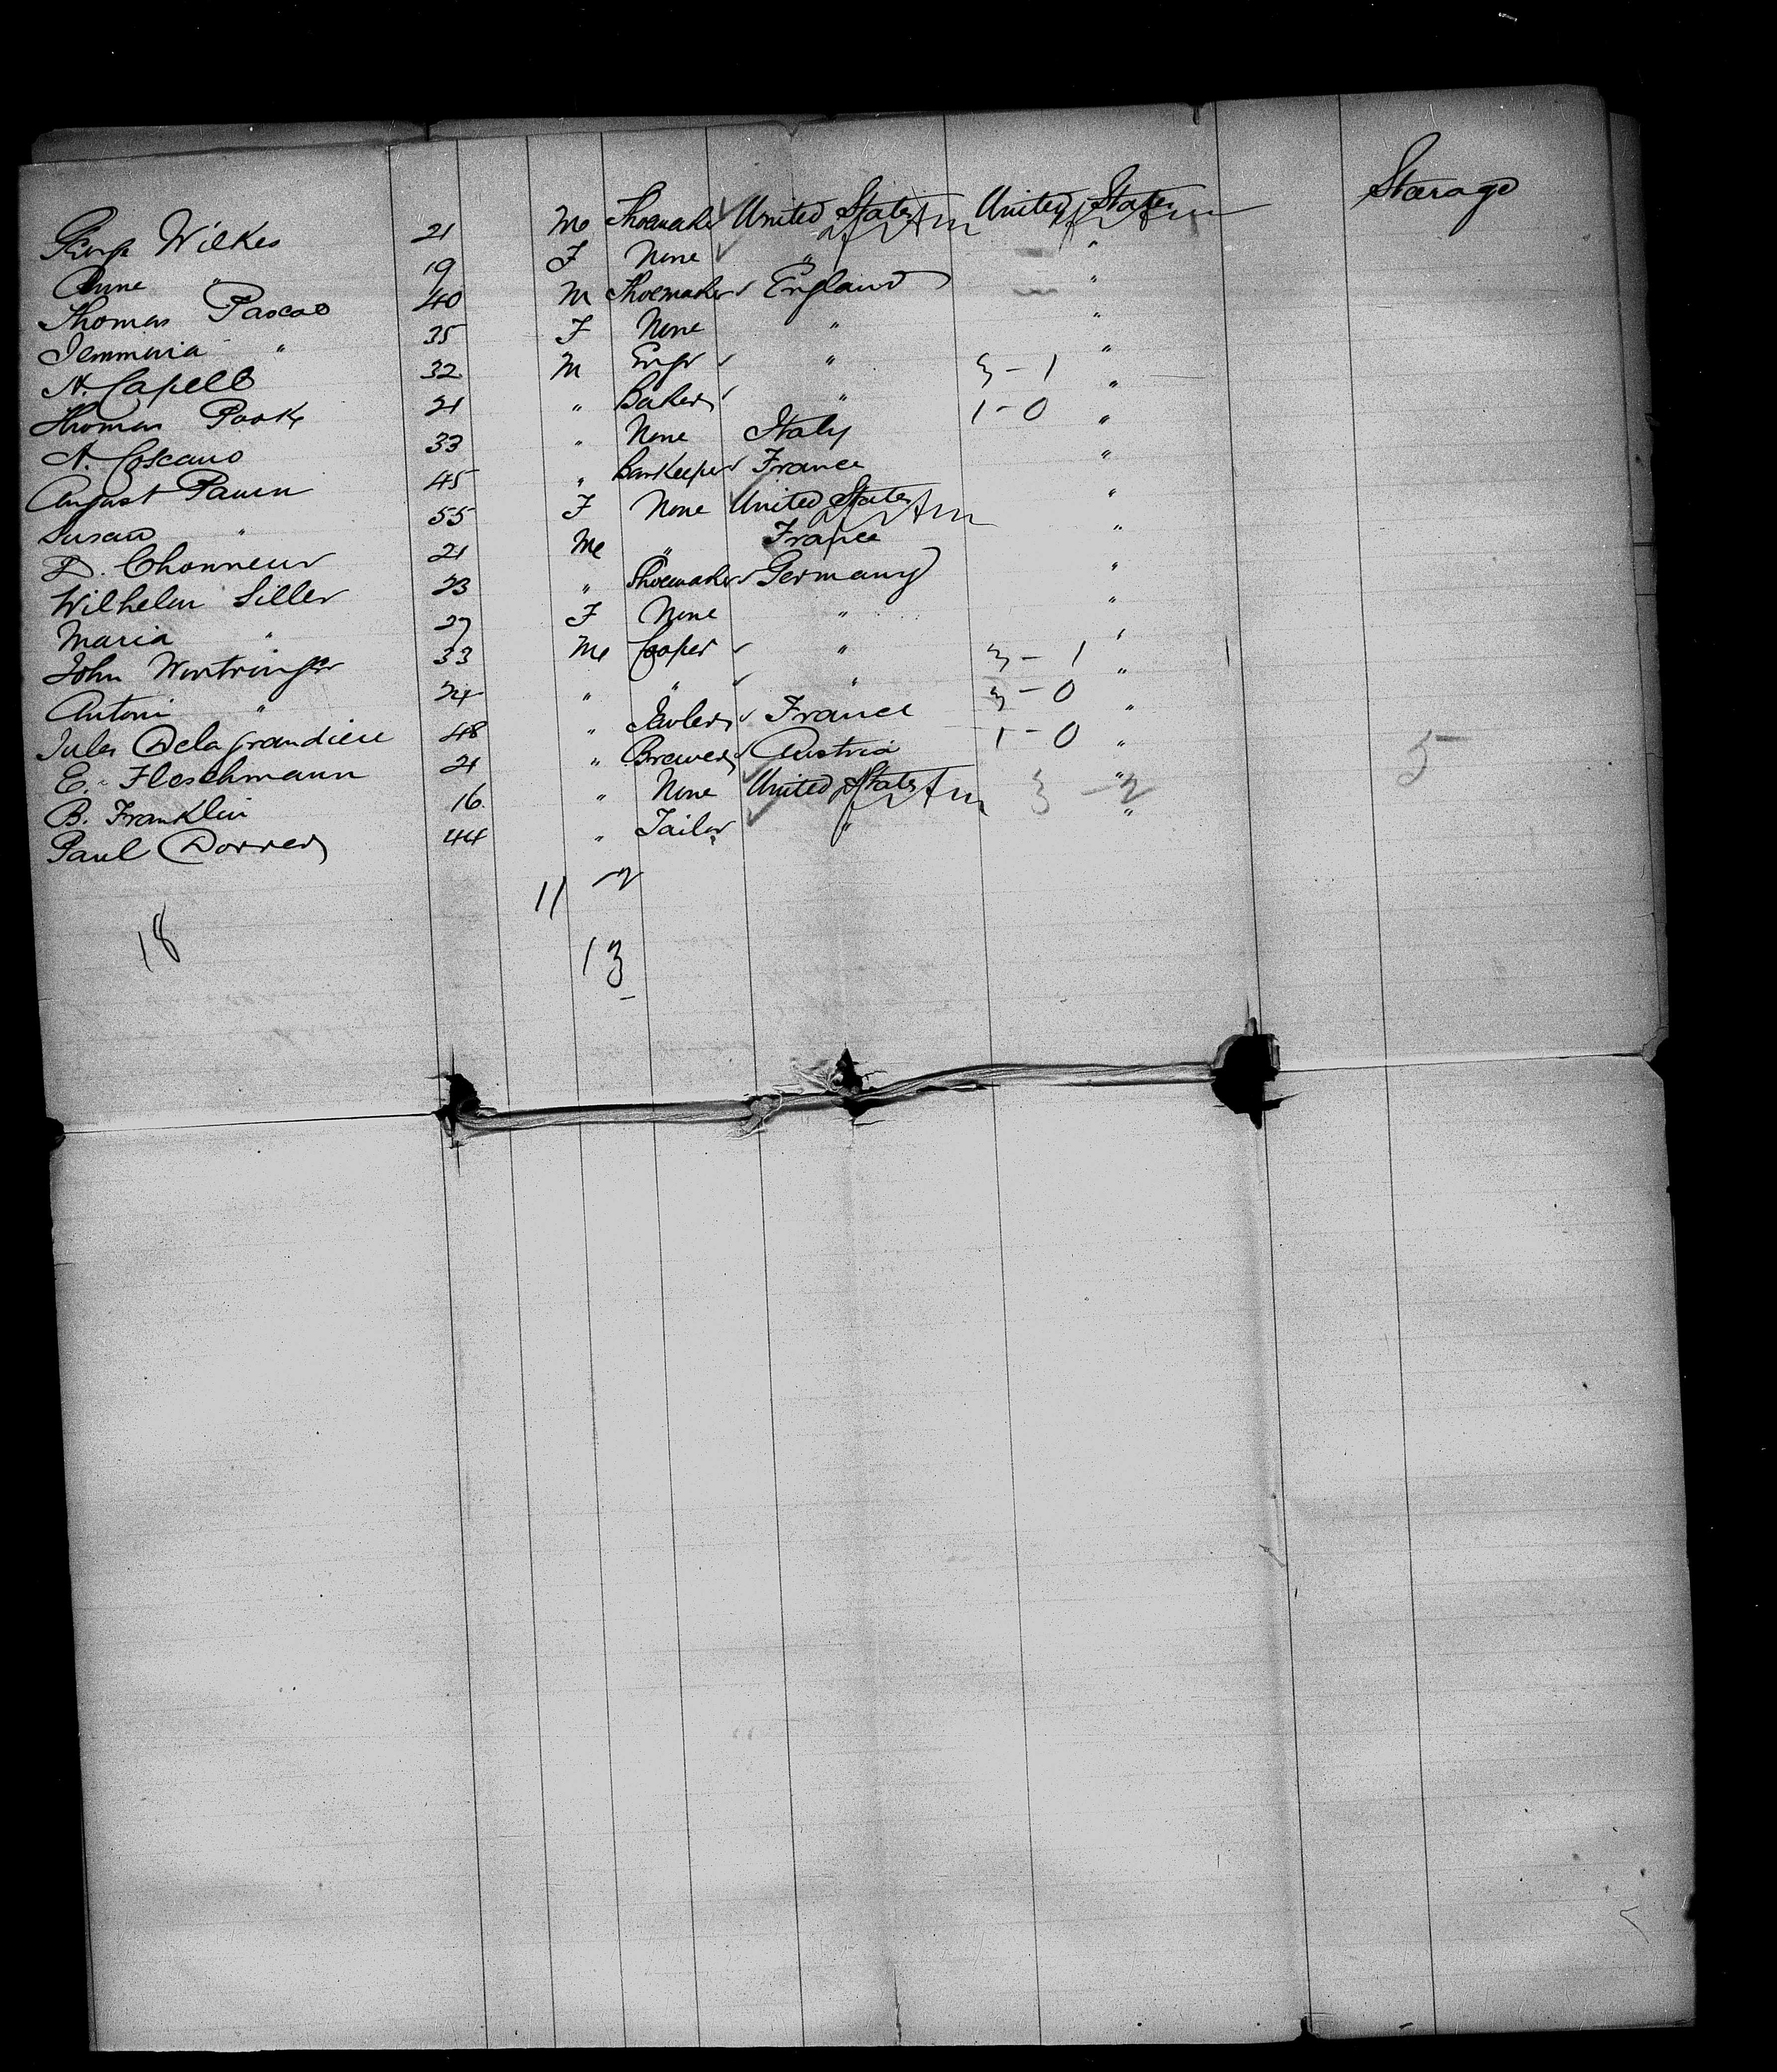 George Wilkes 21 M Shoemaker United States of Am United States of Am Stearage
Anne " 19 F None " "
Thomas Pascoe 40 M Shoemaker England "
Jemmima " 35 F None " "
N. Capell 32 M Engr " 3-1 "
Thomas Pook 21 " Baker " 1-0 "
A. Coscano 33 " None Italy "
August 45 " Barkeeper France "
Susan " 55 F None United States of Am "
D. Chonneur 21 M " France "
Wilhelm Siller 23 " Shoemaker Germany "
Maria " 27 F None " "
John Wintringer 33 M Cooper " 3-1 "
Antoni " 24 " " " 3-0 "
Jules Delagrandiere 48 " Jewler France 1-0 "
E. Fleschmann 21 " Brewer Austria "
B. Franklin 16 " None United States of Am 3-2 " 5-
Paul Dorrer 44 " Tailor " "
11 2
18
13